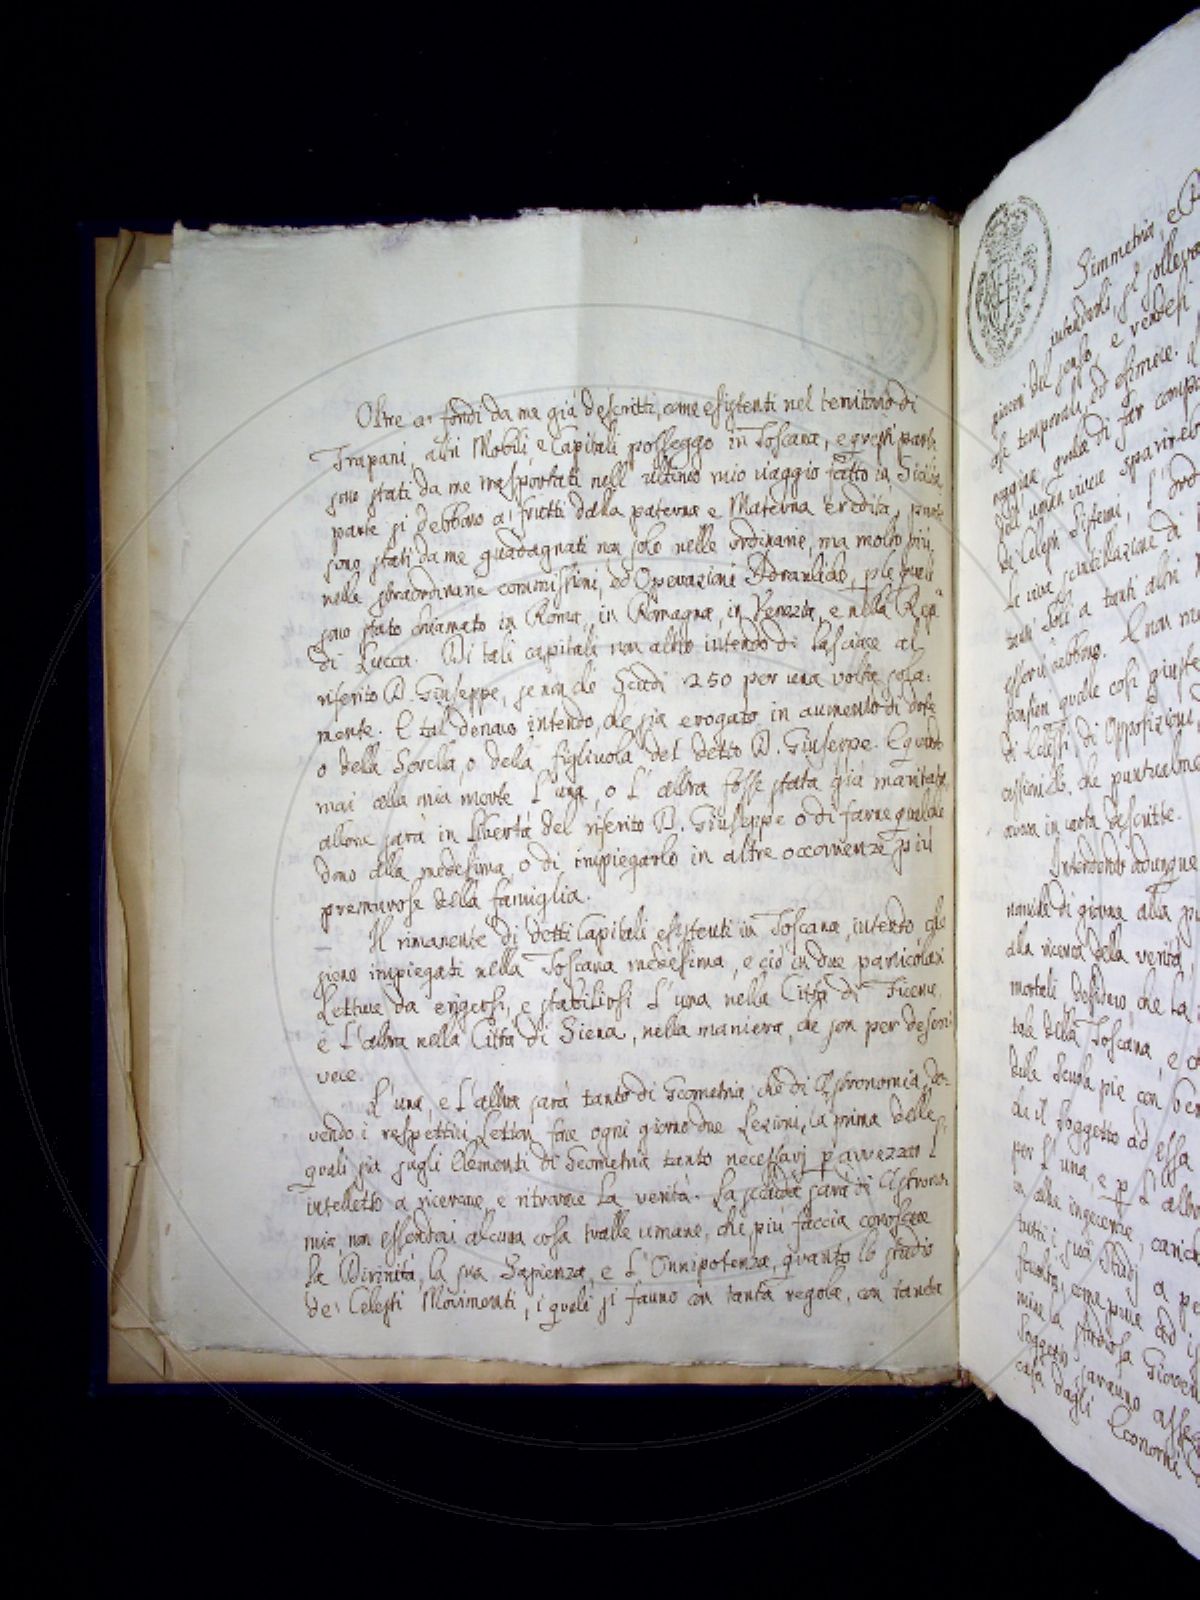 Oltre a' fondi da me già descritti, come esistenti nel territorio di
Trapani, altri Mobili e Capitali posseggo in Toscana, e questi parte
sono stati da me trasportati nell' ultimo mio viaggio fatto in Sicilia,
parte si debbono a' frutti della paterna e Materna eredità, parte
sono stati da me guadagnati non solo nelle ordinarie, ma molto più
nelle straordinarie commissioni, ed Operazioni Idrauliche, p le quali
sono stato chiamato in Roma, in Romagna, in Venezia, e nella Rep.a
di Lucca. Di tali capitali non altro intendo di lasciare al
riferito D. Giuseppe, se non che Scudi 250 per una volta sola:
mente. E tal denaro intendo, che sia erogato in aumento di dote
o della Sorella, o della figliuola del detto D. Giuseppe. E quando
mai alla mia morte l'una, o l'altra fosse stata già maritata,
allora sarà in libertà del riferito D. Giuseppe o di farne qualche
dono alla medesima, o di impiegarlo in altre occorrenze più
premurose della famiglia.
Il rimanente di detti Capitali esistenti in Toscana, intendo che
sieno impiegati nella Toscana medesima, e ciò in due particolari
Letture da ergersi, e stabilirsi l'una nella Città di Firenze,
e l'altra nella Città di Siena, nella maniera, che son per descri:
vere.
L'una, e l'altra sarà tanto di Geometria, che di Astronomia, do:
vendo i respettivi Lettori fare ogni giorno due Lezioni, la prima delle
quali sia sugli Elementi di Geometria tanto necessarj p avvezzar l'
intelletto a ricercare, e ritrovare la verità. La seconda sarà di Astrono:
mia, non essendovi alcuna cosa tralle umane, che più faccia conoscere
la Divinità, la sua Sapienza, e l'Onnipotenza, quanto lo studio
de' Celesti Movimenti, i quali si fanno con tanta regola, con tanta
Simmetria, e
intenderli, gl
piaceri del senso, e vendesi
temporali, ed
di far
umàn vivere
di Celesti Sistemi, l'
La viva scintillazione di
Soli a tanti altri
E non
quelle così giuste
di Eclissi, di Opposizioni,
che puntualme
in carta descritte.
Intendendo adunque
di giovare alla
alla ricerca della verità,
mortali desidero, che la
tale della Toscana, e
delle Scuole pie con
il Soggetto ad essa
per l'una, e p l'altra
ingerenze,
tutti i suoi Studj a
come pure ad
la studiosa Gioven
Soggetti saranno
casa dagli Economi